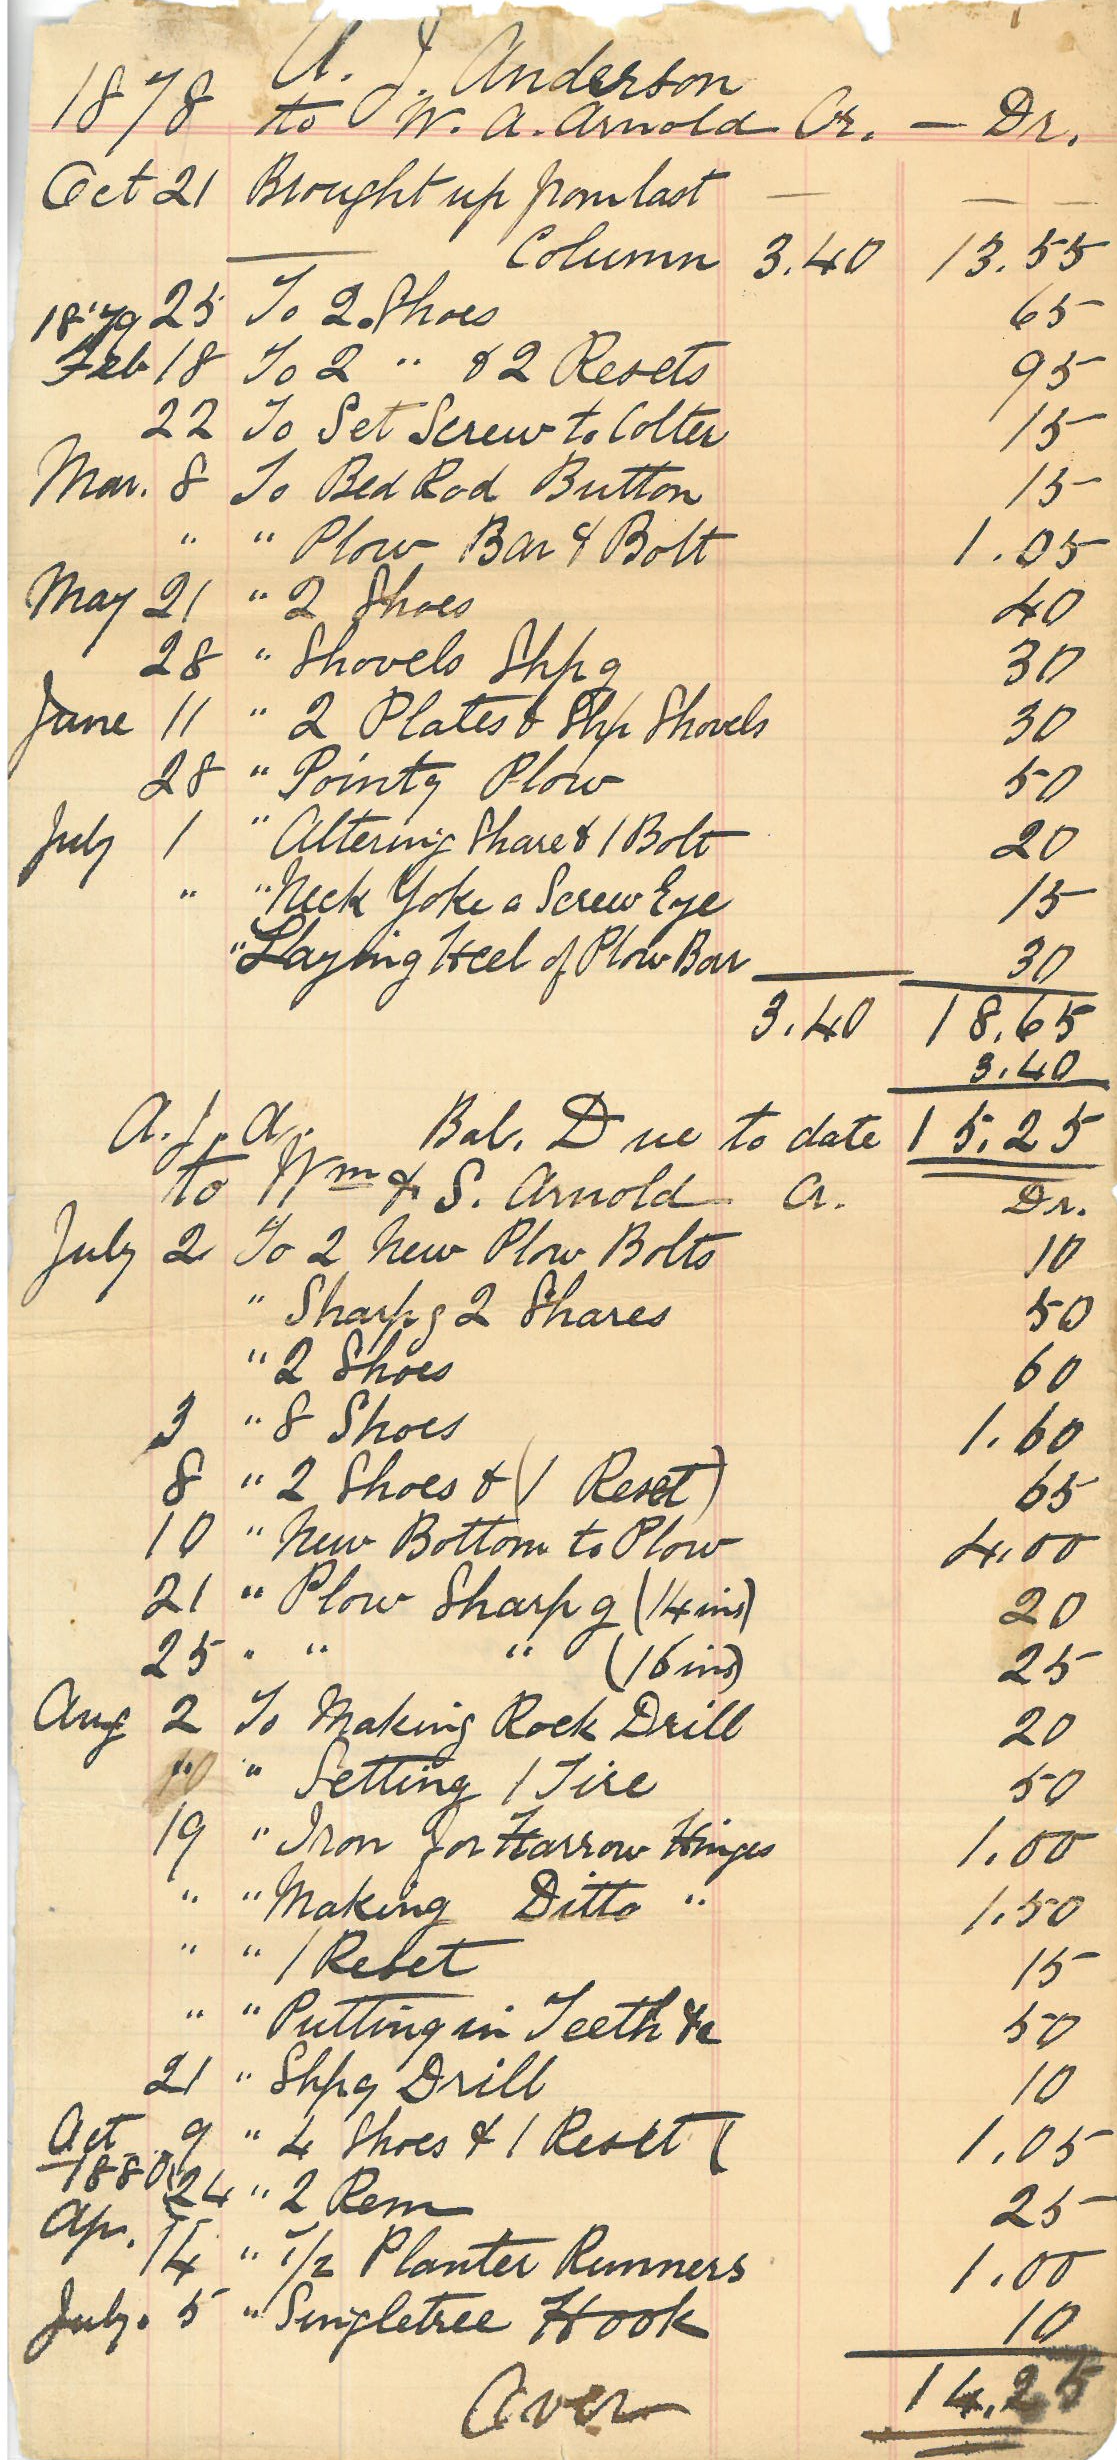 A. J. Anderson
1878 to W. A. Arnold Cr. — Dr.
Oct 21 Brought up from last — — —
Column 3.40 13.55
25 To 2 Shoes 65
1879
Feb 18 To 2 " & 2 Resets 95
22 To Set Screw to Colter 15
Mar. 8 To Bed Rod Button 15
" " Plow Bar & Bolt 1.05
May 21 " 2 Shoes 40
28 " Shovels Shpg 30
June 11 " 2 Plates & Shp Shovels 30
28 " Pointg Plow 50
July 1 " Altering Share & 1 Bolt 20
" " Neck Yoke a Screw Eye 15
" Laying Heel of Plow Bar 30
3.40 18.65
3.40
A. J. A. Bal. Due to date 15.25
to Wm & S. Arnold Cr. Dr.
July 2 To 2 New Plow Bolts 10
" Sharpg 2 Shares 50
" 2 Shoes 60
3 " 8 Shoes 1.60
8 " 2 Shoes & (1 Reset) 65
10 " New Bottom to Plow 4.00
21 " Plow Sharpg (14 ins) 20
25 " " " (16 ins) 25
Aug 2 To Making Rock Drill 20
" " Setting 1 Tire 50
19 " Iron for Harrow Hinges 1.00
" " Making Ditto " 1.50
" " 1 Reset 15
" " Putting in Teeth &c 50
21 " Shpg Drill 10
Oct 9 " 4 Shoes & 1 Reset ( 1.05
1880 24 " 2 Rem 25
Apr. 14 " 1/2 Planter Runners 1.00
July. 5 " Singletree Hook 10
14.25
Over